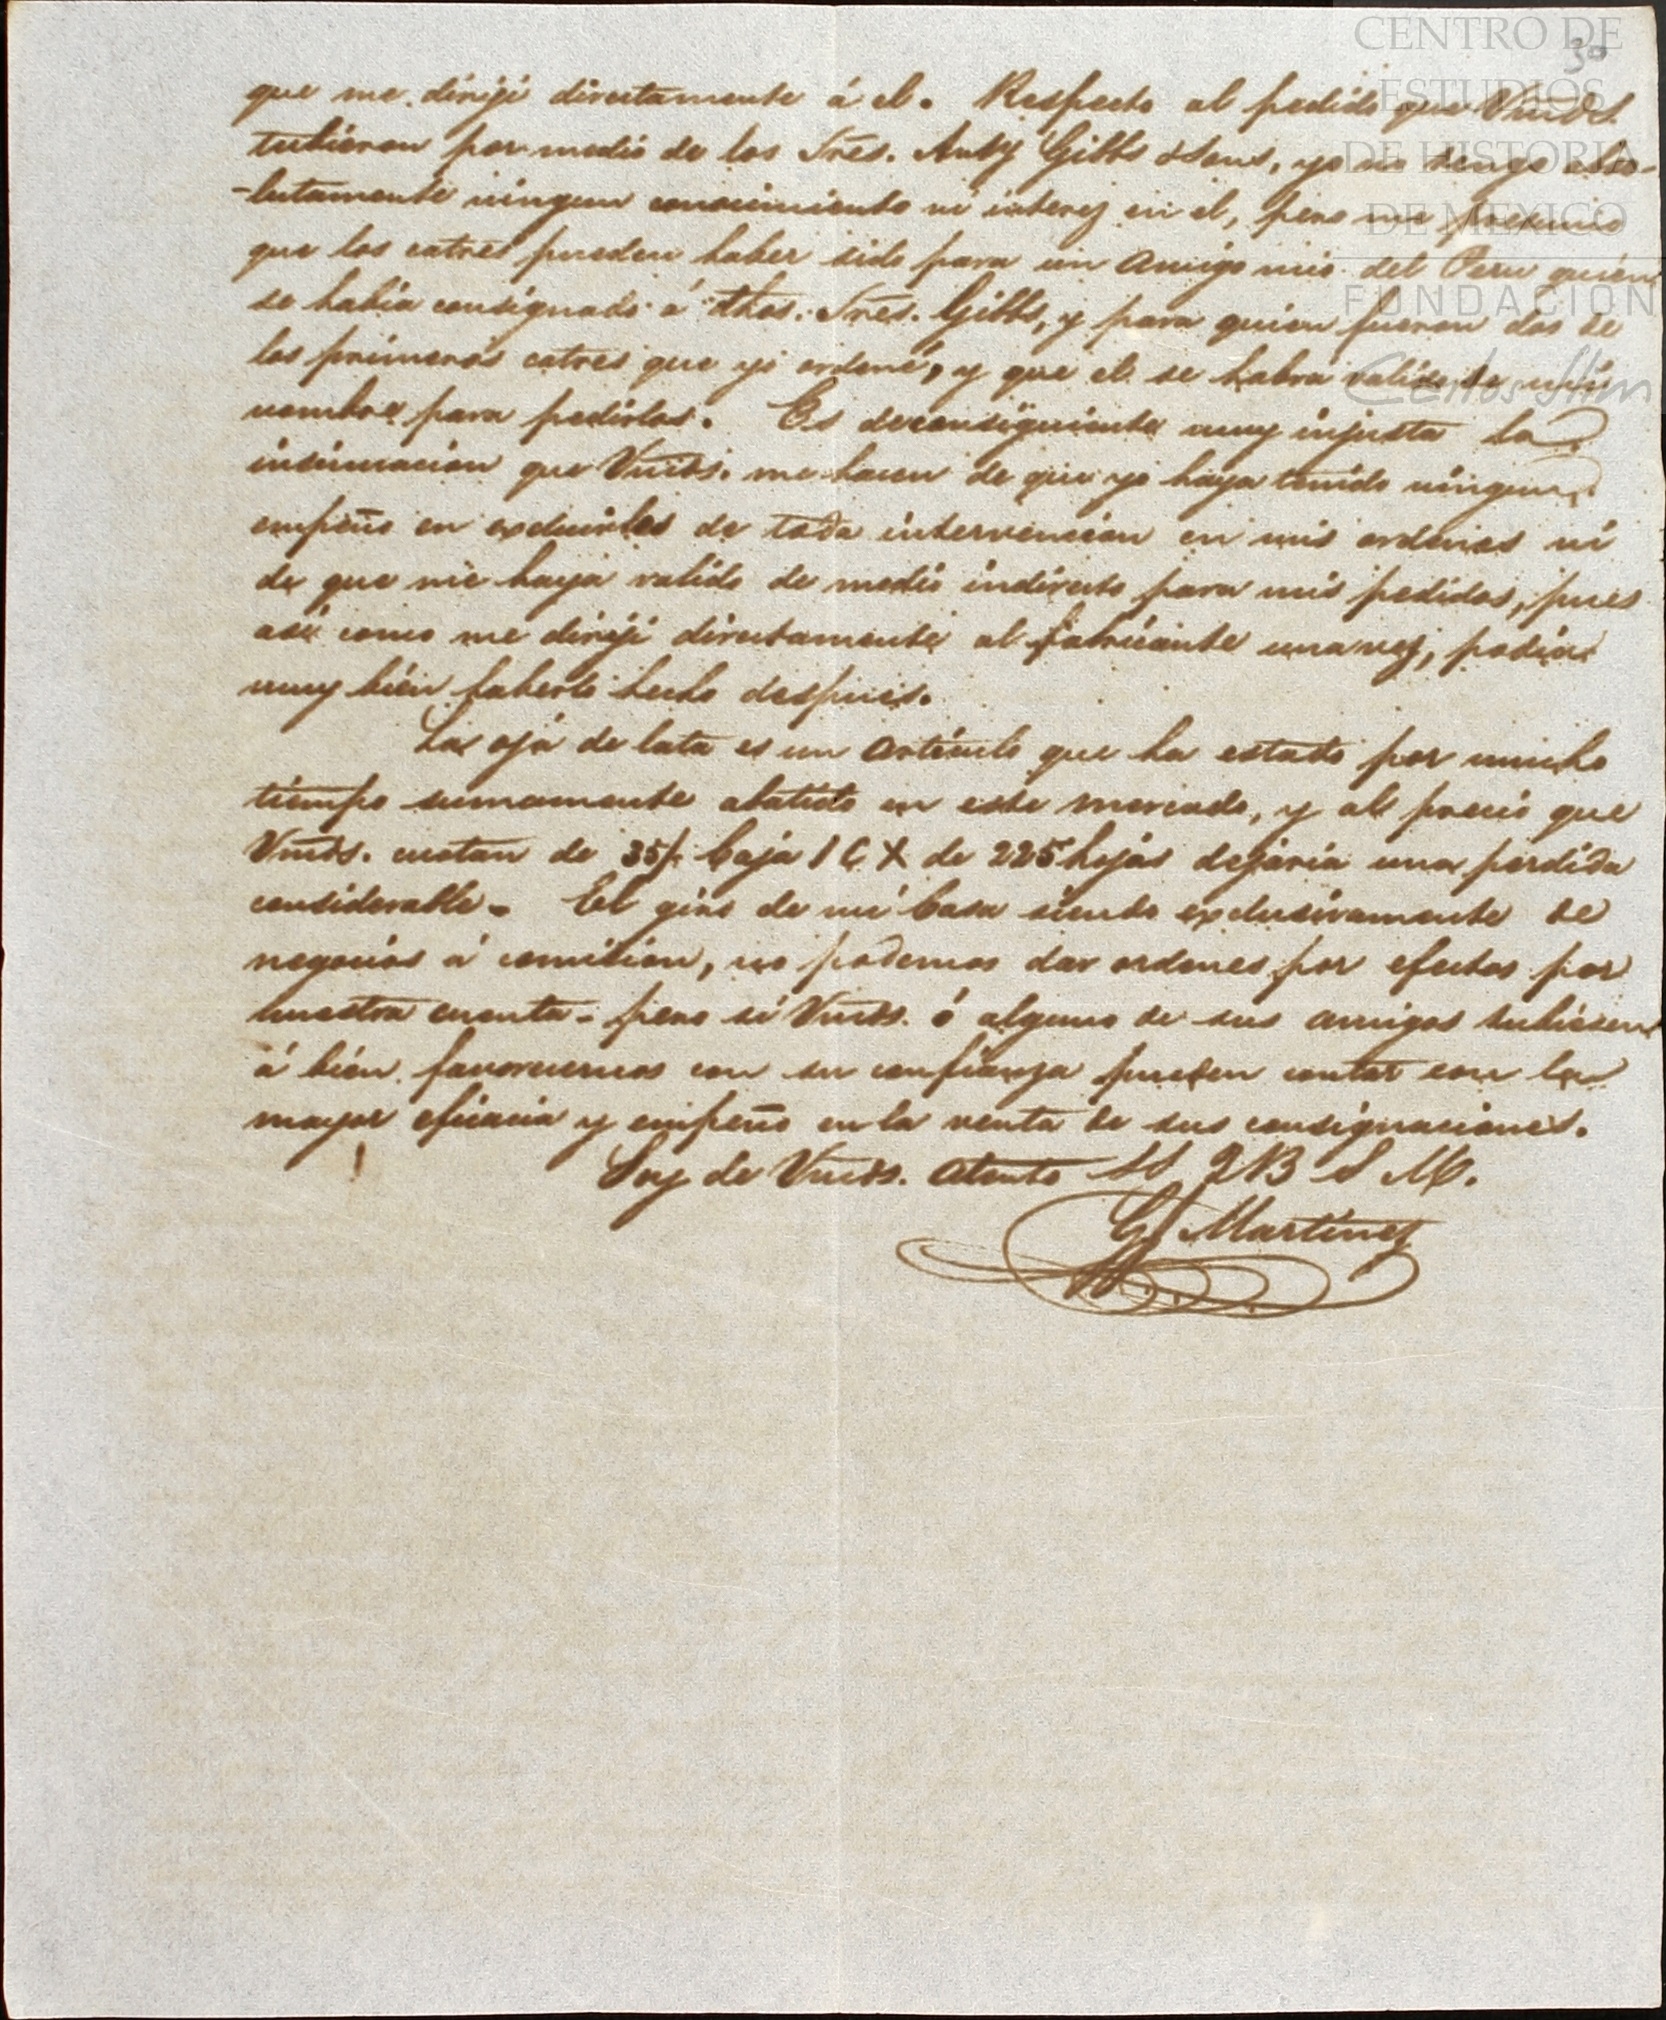 CENTRO DE
ESTUDIOS
DE HISTORIA
DE MEXICO
FUNDACION
Carlos Slim
30
que me dirijí directamente á el. Respecto al pedido que Vmds.
tubieron por medio de los Sres. Anty Gibbs & Sons, yo no tengo abso-
-lutamente ningun conocimiento ni interez en el, pero me presumo
que los catres pueden haber sido para un amigo mio del Peru quien
se habia consignado á dhos. Sres. Gibbs, y para quien fueron dos de
los primeros catres que yo ordené, y que el se habra valido de mi
nombre para pedirlos. Es de consiguiente muy injusta la
insinuacion que Vmds. me hacen de que yo haya tenido ningun
empeño en excluirles de toda intervencion en mis ordenes ni
de que me haya valido de medio indirecto para mis pedidos, pues
asi como me dirijí directamente al fabricante una vez, podia
muy bien haberlo hecho despues.
La oja de lata es un articulo que ha estado por mucho
tiempo sumamente abatido en este mercado, y al precio que
Vmds. cuotan de 35/. Caja 1 C X de 225 hojas dejaria una perdida
considerable. El giro de mi Casa siendo exclusivamente de
negocios á comision, no podemos dar ordenes por efectos por
nuestra cuenta - pero si Vmds. ó alguno de sus amigos tubiesen
á bien favorecernos con su confianza pueden contar con la
mayor eficacia y empeño en la venta de sus consignaciones.
Soy de Vmds. atento SS Q B S M.
G Martinez